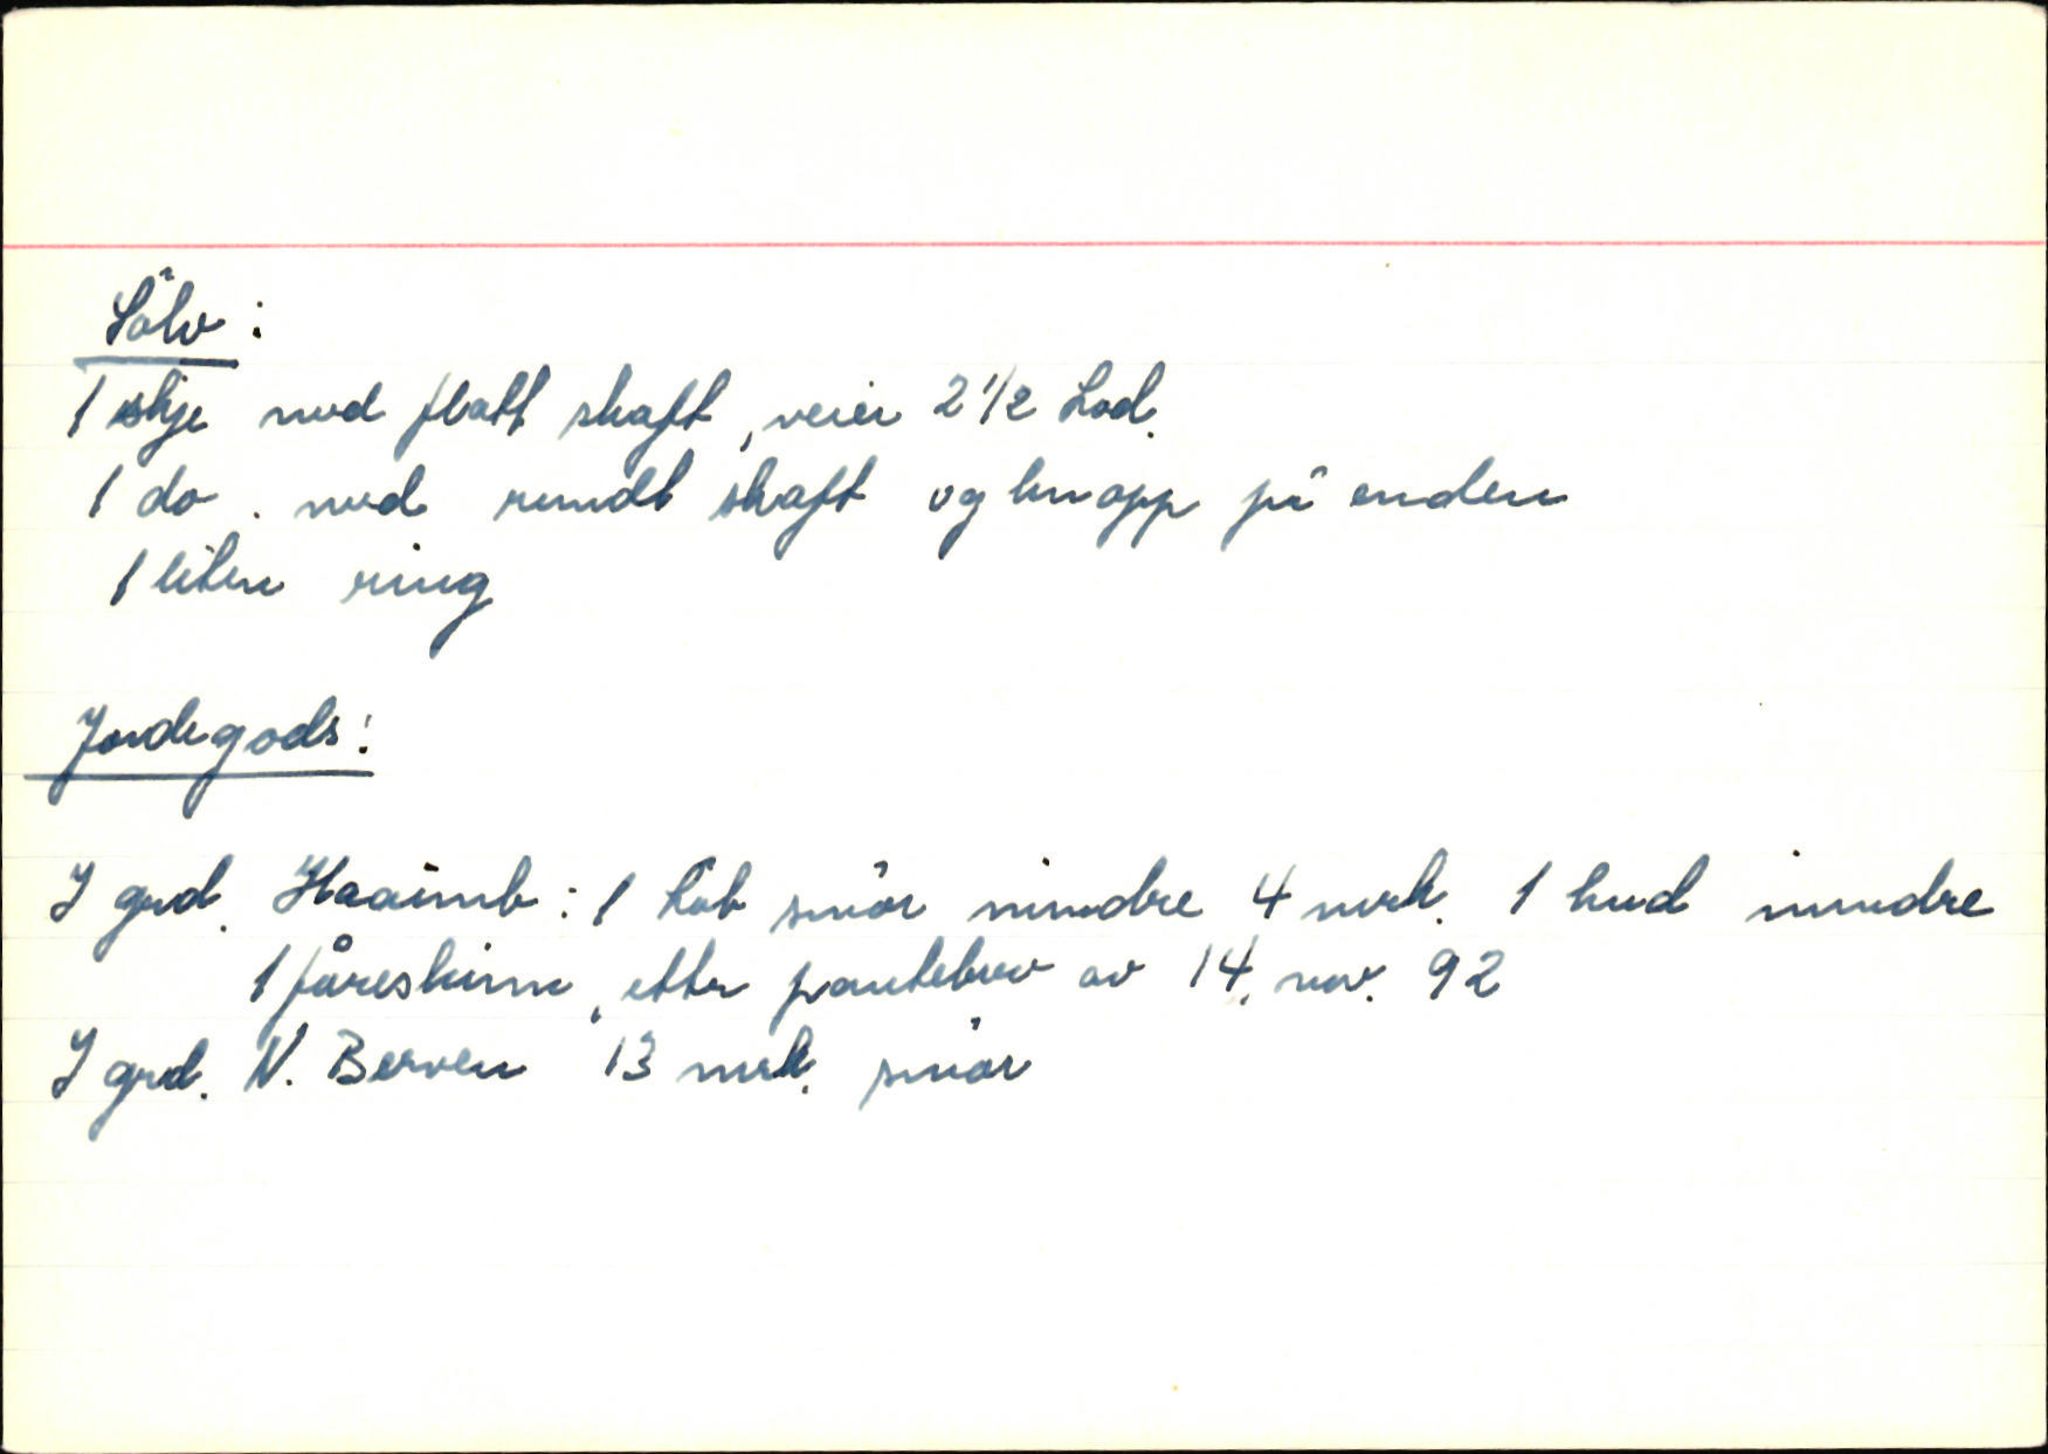 Sölv:
1 skje med flatt skaft, veier 2 1/2 Lod.
1 do. med rundt skaft og knapp på enden
1 liten ring
Jordegods:
I grd. Haaimb: 1 Löb smör mindre 4 mrk. 1 hud mindre
1 fåreskinn, etter pantebrev av 14. nov. 92
I grd. N. Berven 13 mrk. smör